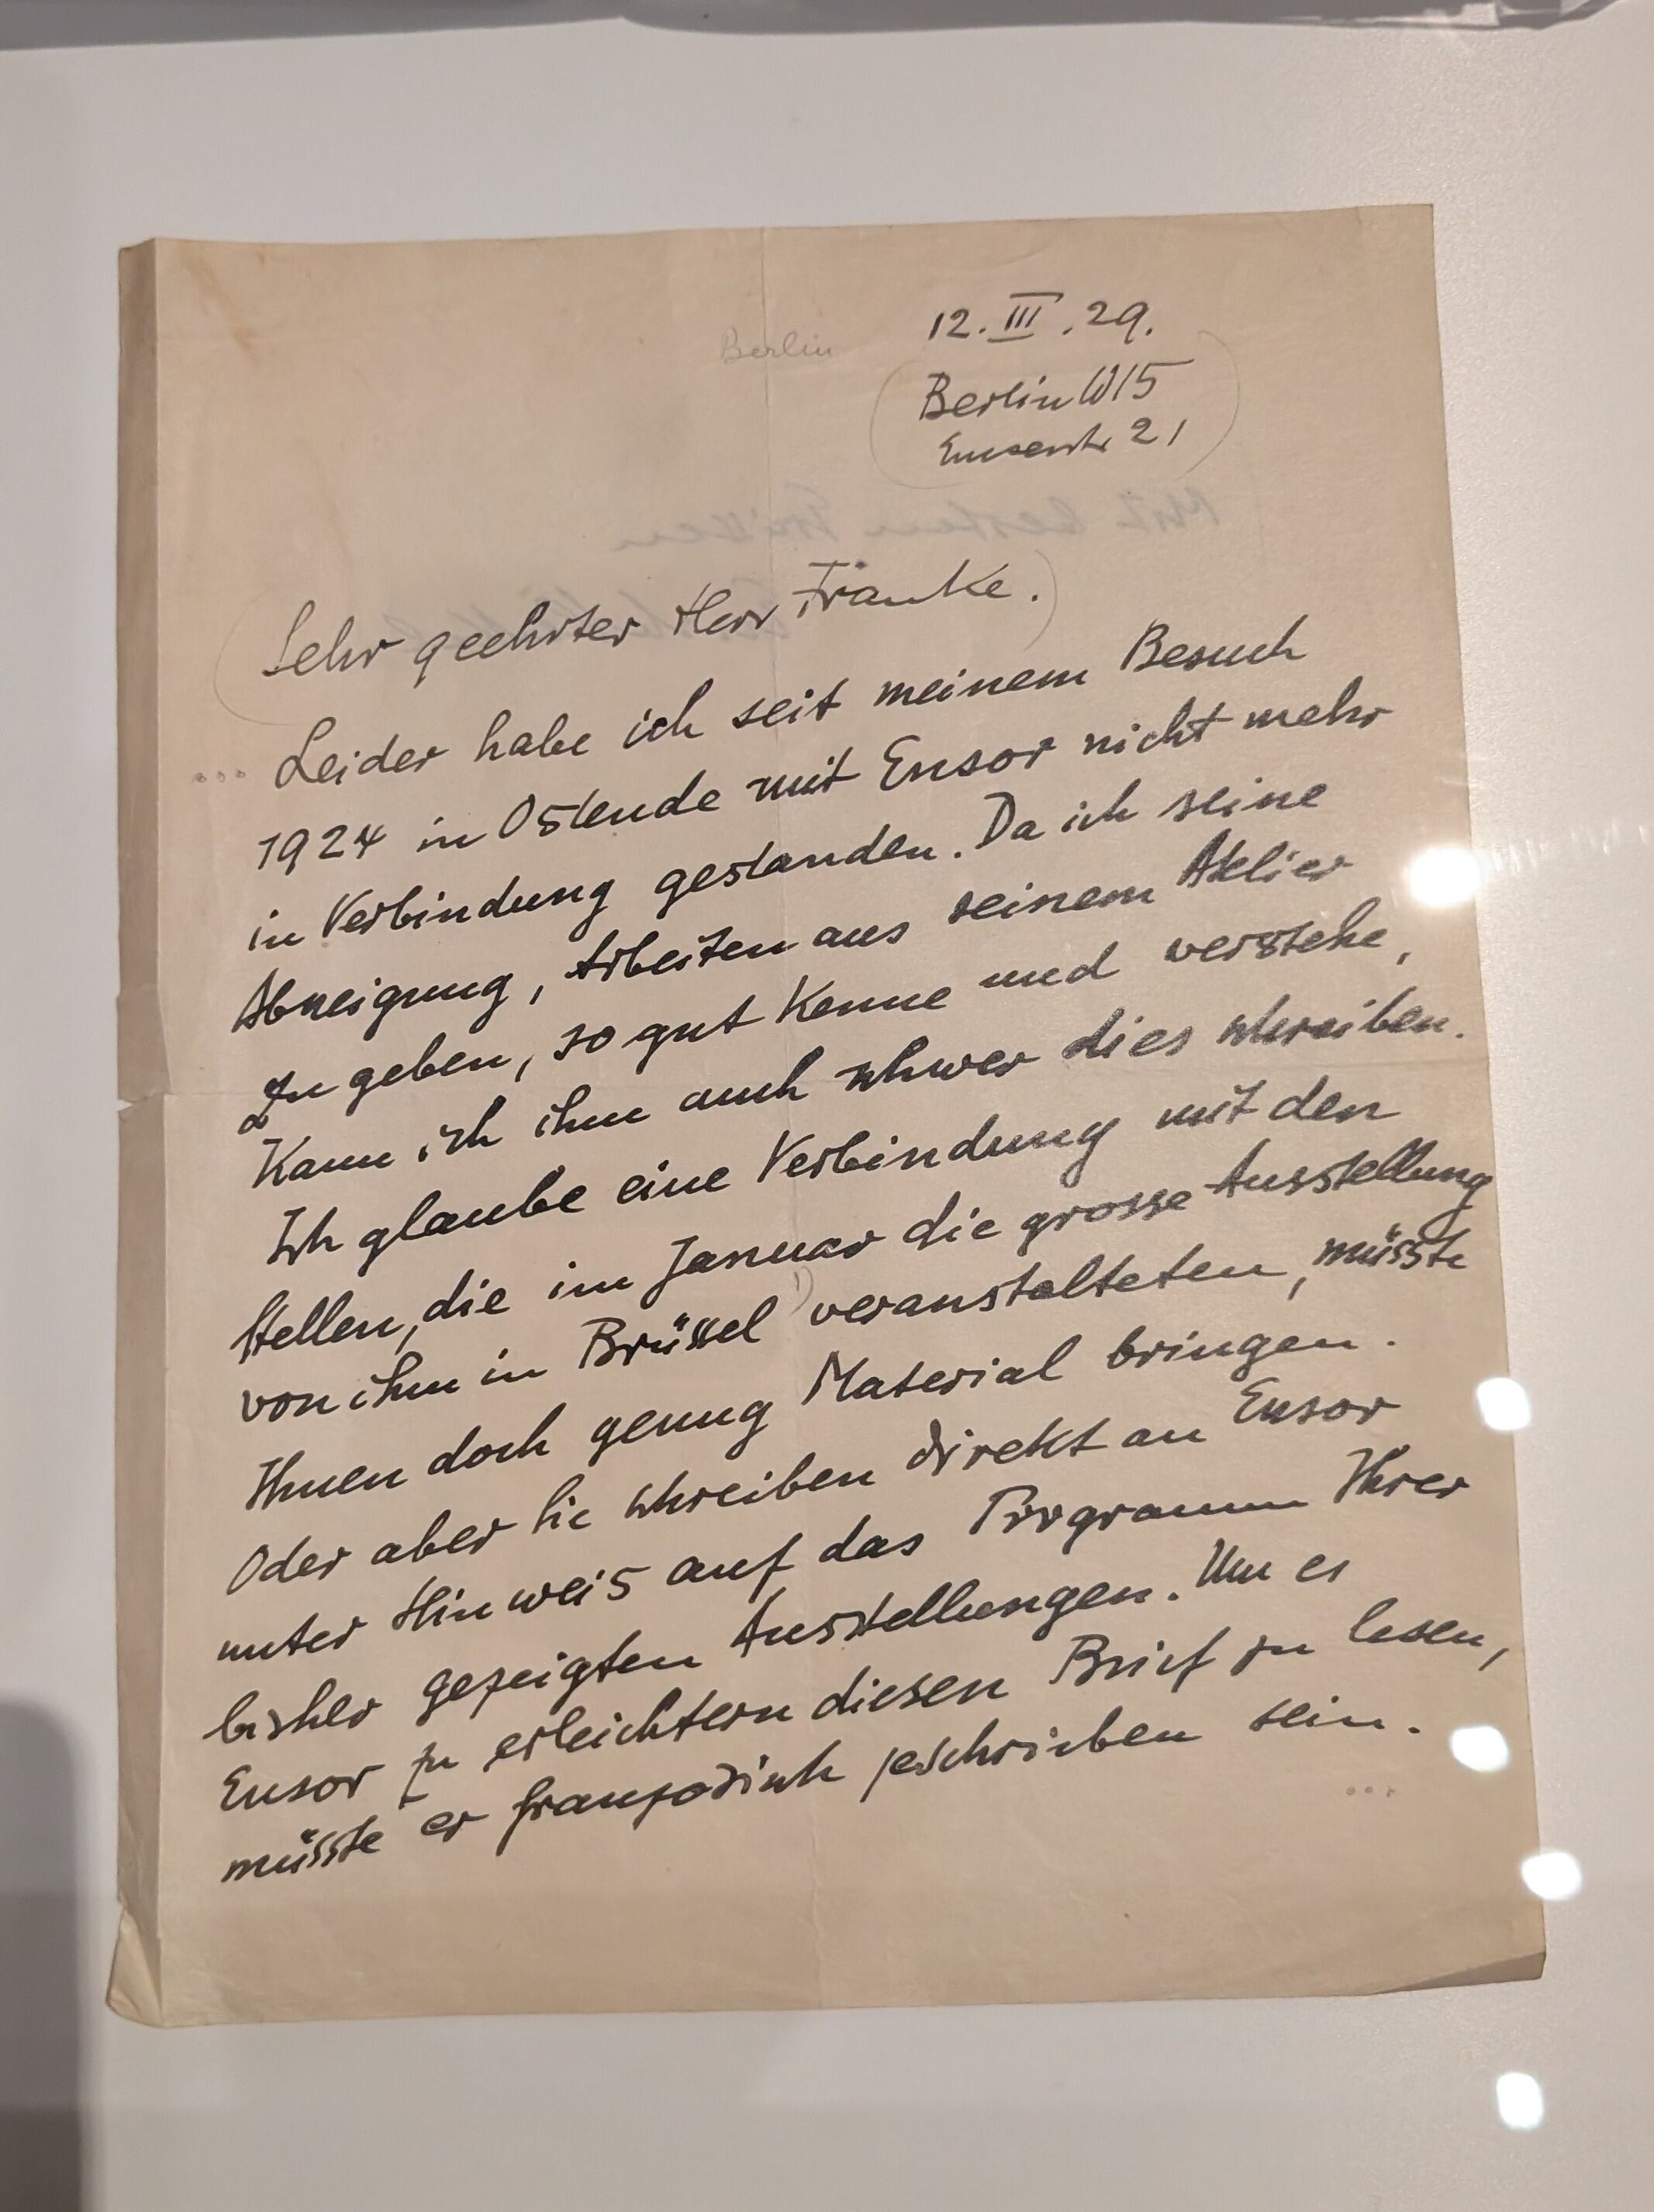 Berlin
12. III. 29.
Berlin W15
Emserstr 21
Sehr geehrter Herr Franke.
... Leider habe ich seit meinem Besuch
1924 in Ostende mit Ensor nicht mehr
in Verbindung gestanden. Da ich seine
Abneigung, Arbeiten aus seinem Atelier
zu geben, so gut Kenne und verstehe,
Kann ich ihm auch schwer dies schreiben.
Ich glaube eine Verbindung mit den
Stellen, die im Januar die grosse Ausstellung
von ihm in Brüssel 1) veranstalteten, müsste
Ihnen doch genug Material bringen.
Oder aber Sie schreiben direkt an Ensor
unter Hinweis auf das Programm Ihrer
bisher gezeigten Ausstellungen. Um es
Ensor zu erleichtern diesen Brief zu lesen,
müsste er französisch geschrieben sein.
...